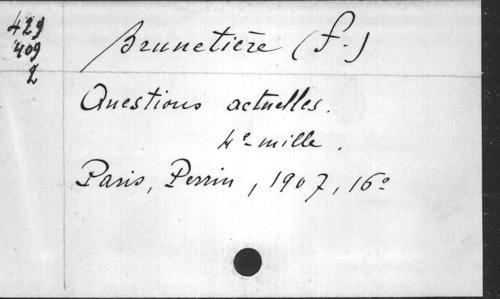 429
409
2
Brunetière (F.)
Questions actuelles.
4e mille.
Paris, Perrin, 1907, 16º